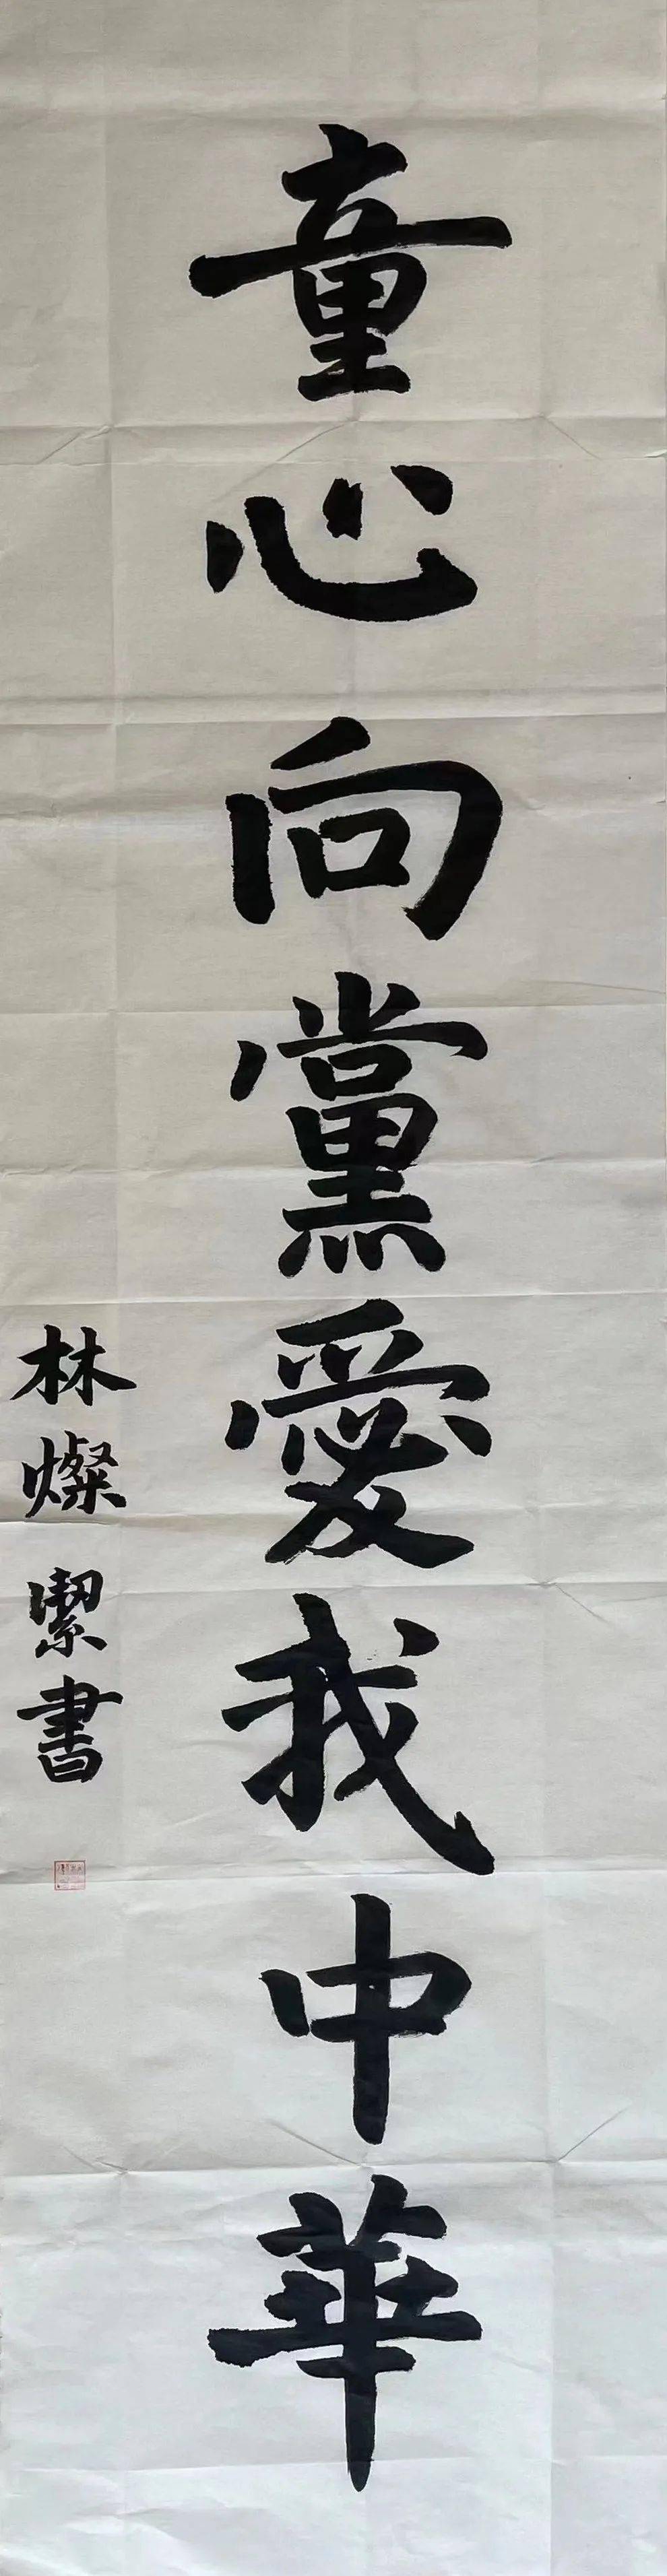 童心向黨愛我中華
林燦潔書